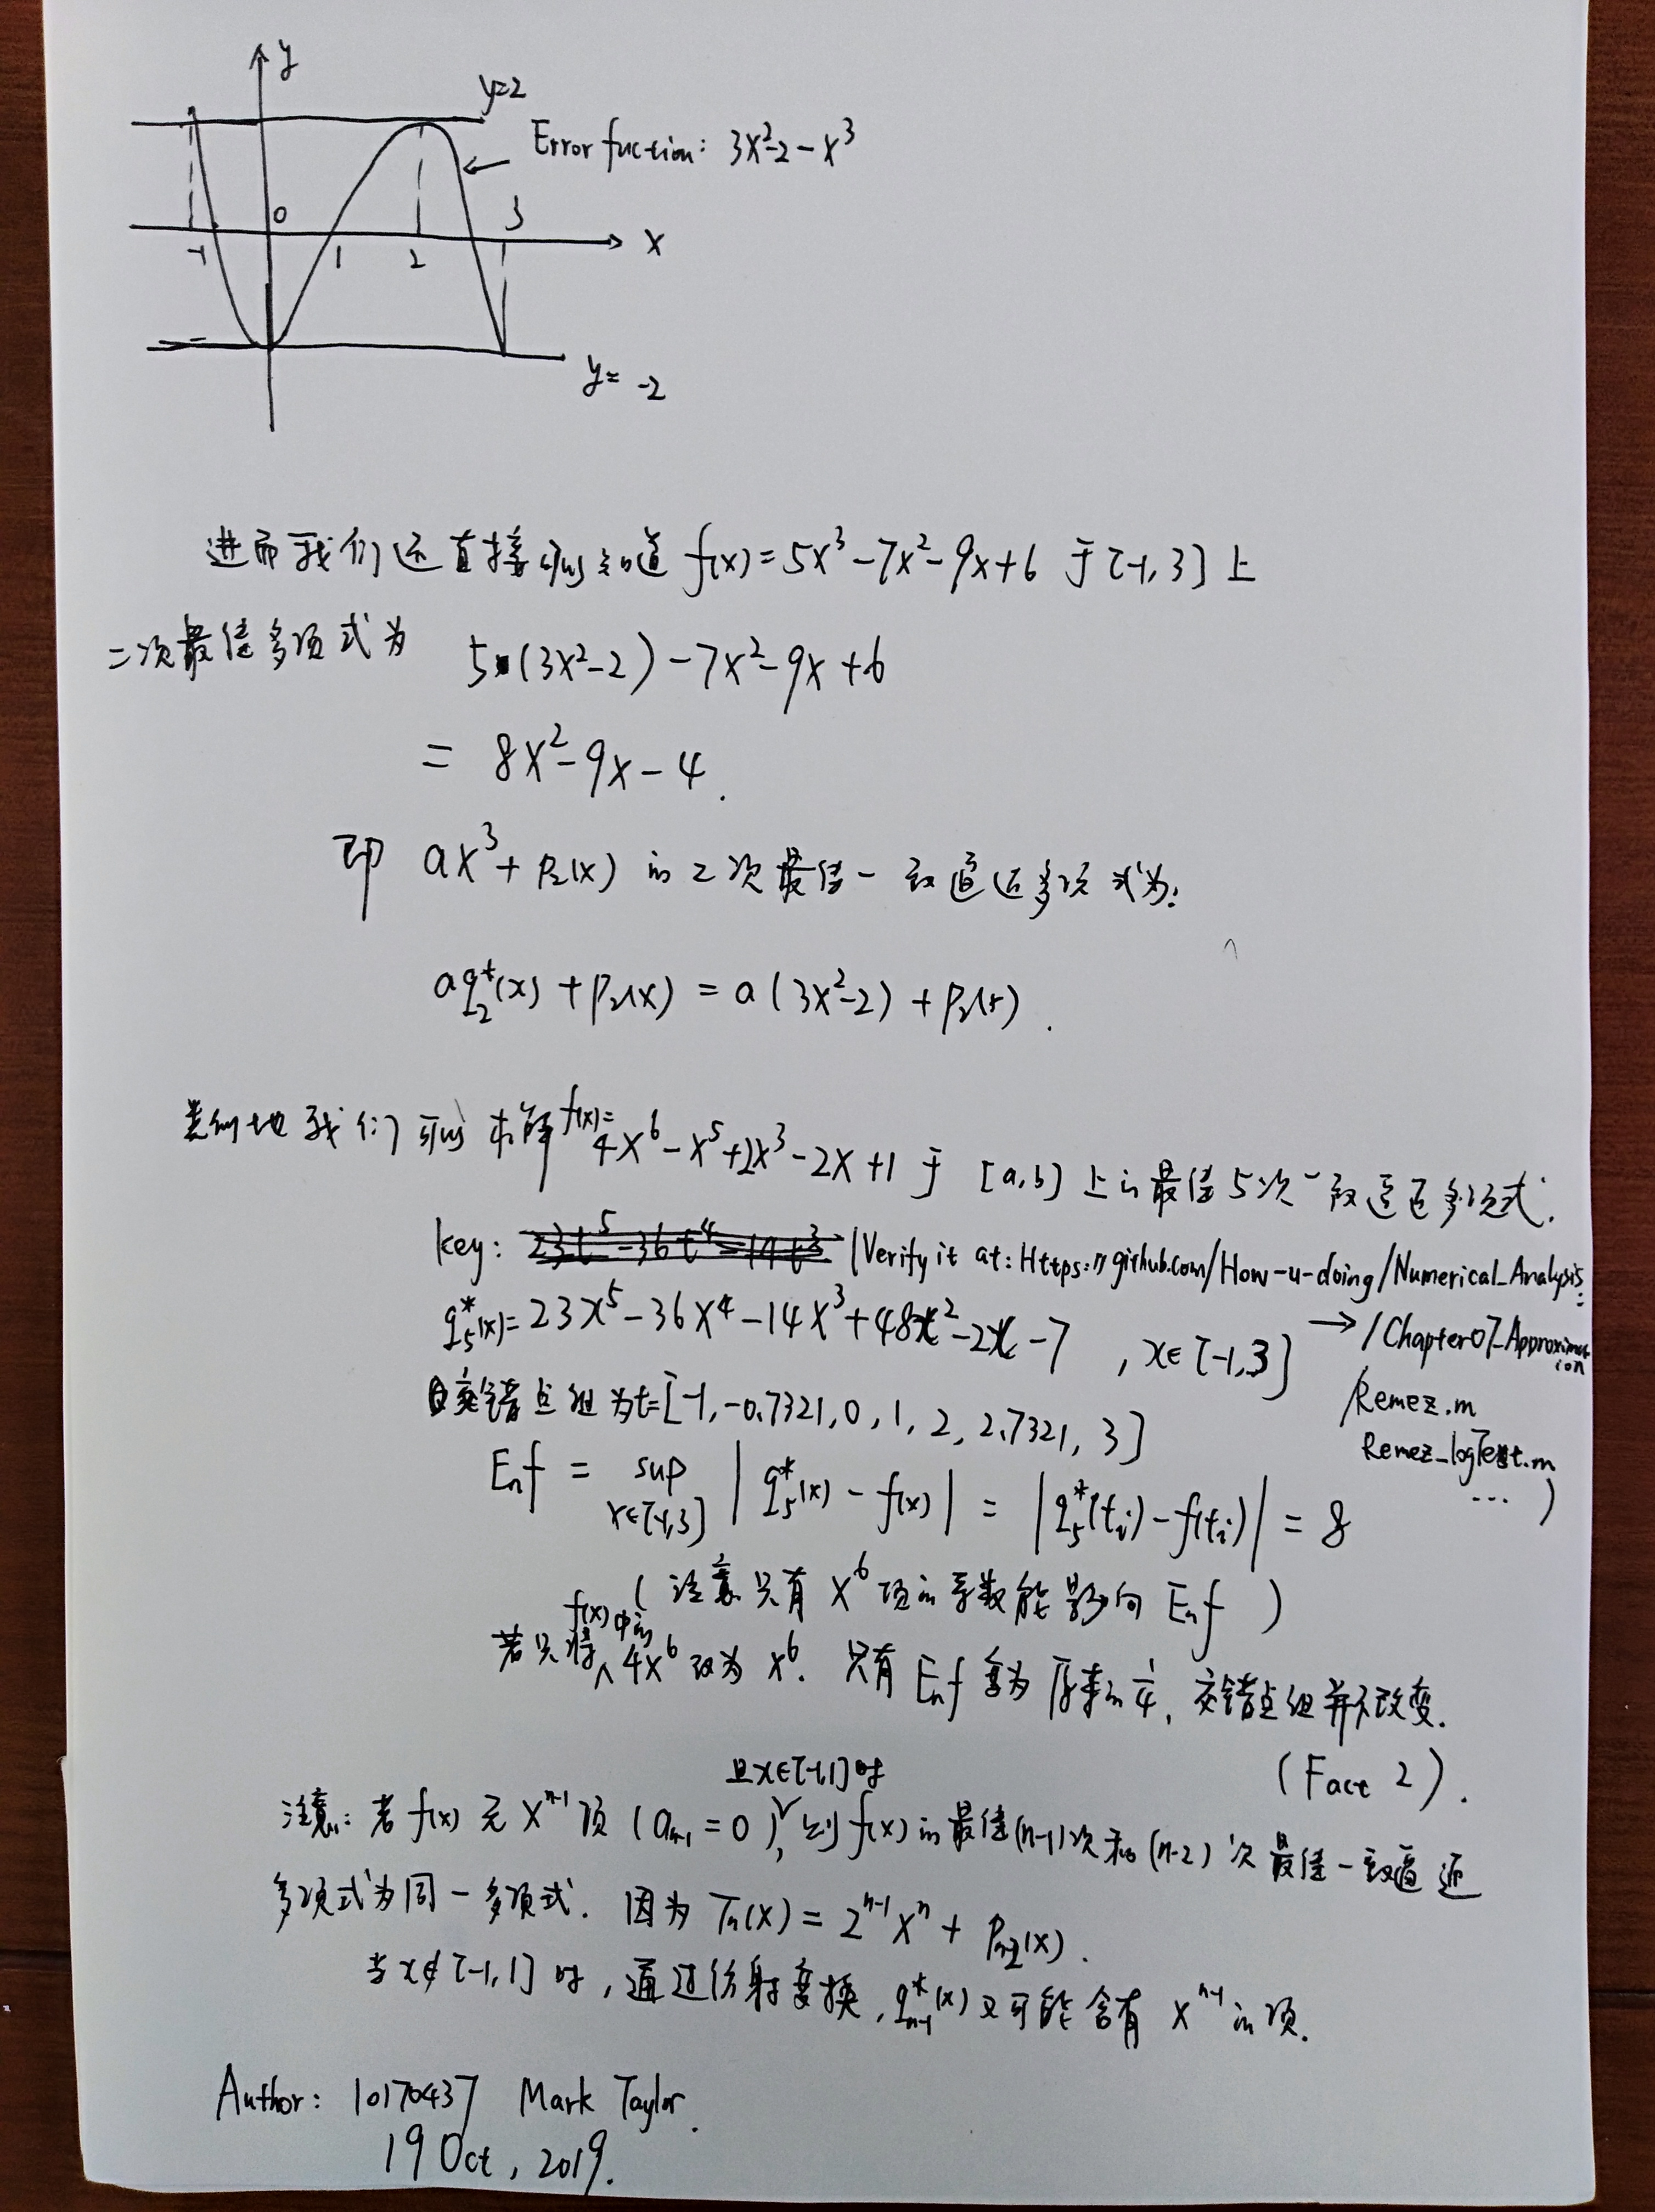 y
y=2
Error fuction: 3x²-2-x³
0
3
-1
1
2
x
y= -2
进而我们还直接可以知道 f(x)=5x³-7x²-9x+6 于[-1,3]上
二次最佳多项式为 5(3x²-2)-7x²-9x+6
= 8x²-9x-4.
即 ax³+p₂(x) 的2次最佳一致逼近多项式为:
aq₂*(x)+p₂(x) = a(3x²-2)+p₂(x).
类似地我们可以求解 f(x)=4x⁶-x⁵+2x³-2x+1 于 [a,b] 上的最佳5次一致逼近多项式.
key: 23t⁵-36t⁴-14t³ (Verify it at: Https://github.com/How-u-doing/Numerical_Analysis
q₅*(x)=23x⁵-36x⁴-14x³+48x²-2x-7 , x∈[-1,3] → /Chapter07_Approximation
/Remez.m
Remez_logTest.m
... )
且交错点组为t=[-1,-0.7321,0,1,2,2.7321,3]
Eₙf = sup x∈[-1,3] |q₅*(x)-f(x)| = |q₅*(tᵢ)-f(tᵢ)| = 8
(注意只有 x⁶ 项的系数能影响 Eₙf )
若只将f(x)中的4x⁶改为 x⁶. 只有 Eₙf 变为原来的 1/4, 交错点组并不改变.
(Fact 2).
注意: 若 f(x) 无 xⁿ⁻¹ 项 (aₙ₋₁=0), 且x∈[-1,1]时 则 f(x) 的最佳(n-1)次和(n-2)次最佳一致逼近
多项式为同一多项式. 因为 Tₙ(x) = 2ⁿ⁻¹xⁿ + pₙ₋₂(x).
当 x∉[-1,1] 时, 通过仿射变换, qₙ₋₁*(x) 又可能含有 xⁿ⁻¹ 的项.
Author: 10170437 Mark Taylor.
19 Oct, 2019.